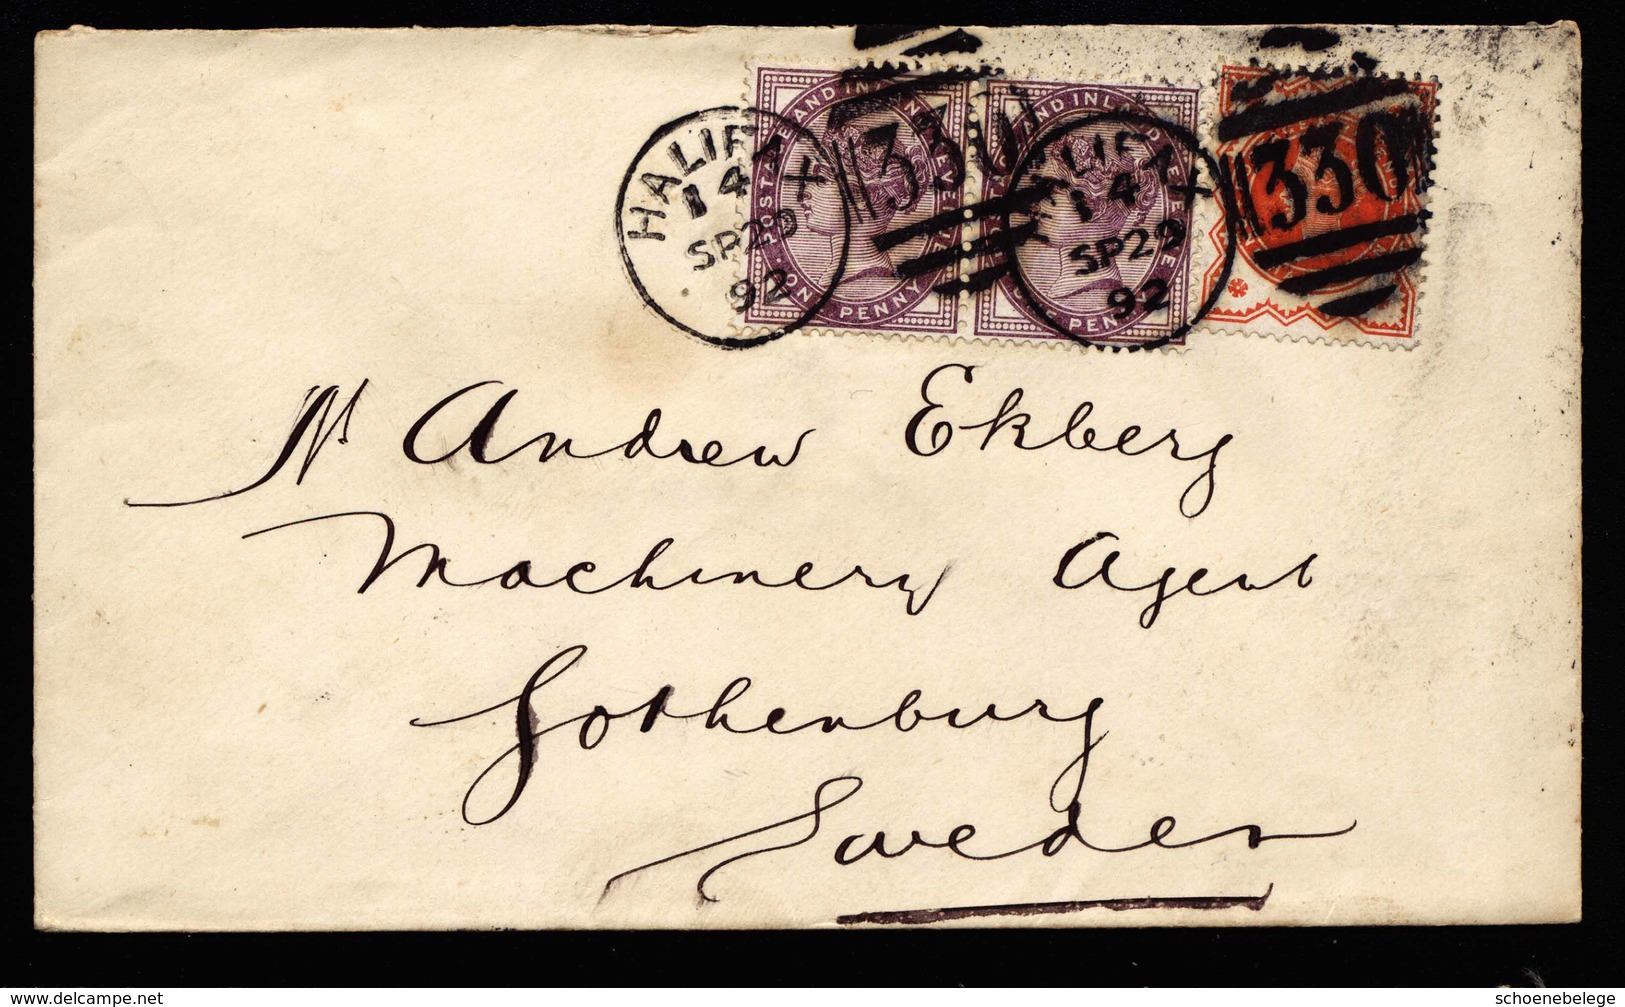 HALIFAX
14
SP29
92
330
HALIFAX
14
SP29
92
330
POSTAGE AND INLAND REVENUE
ONE PENNY
POSTAGE AND INLAND REVENUE
ONE PENNY
Mr Andrew Ekberg
Machinery Agent
Gothenburg
Sweden
© delcampe.net
schoenebelege